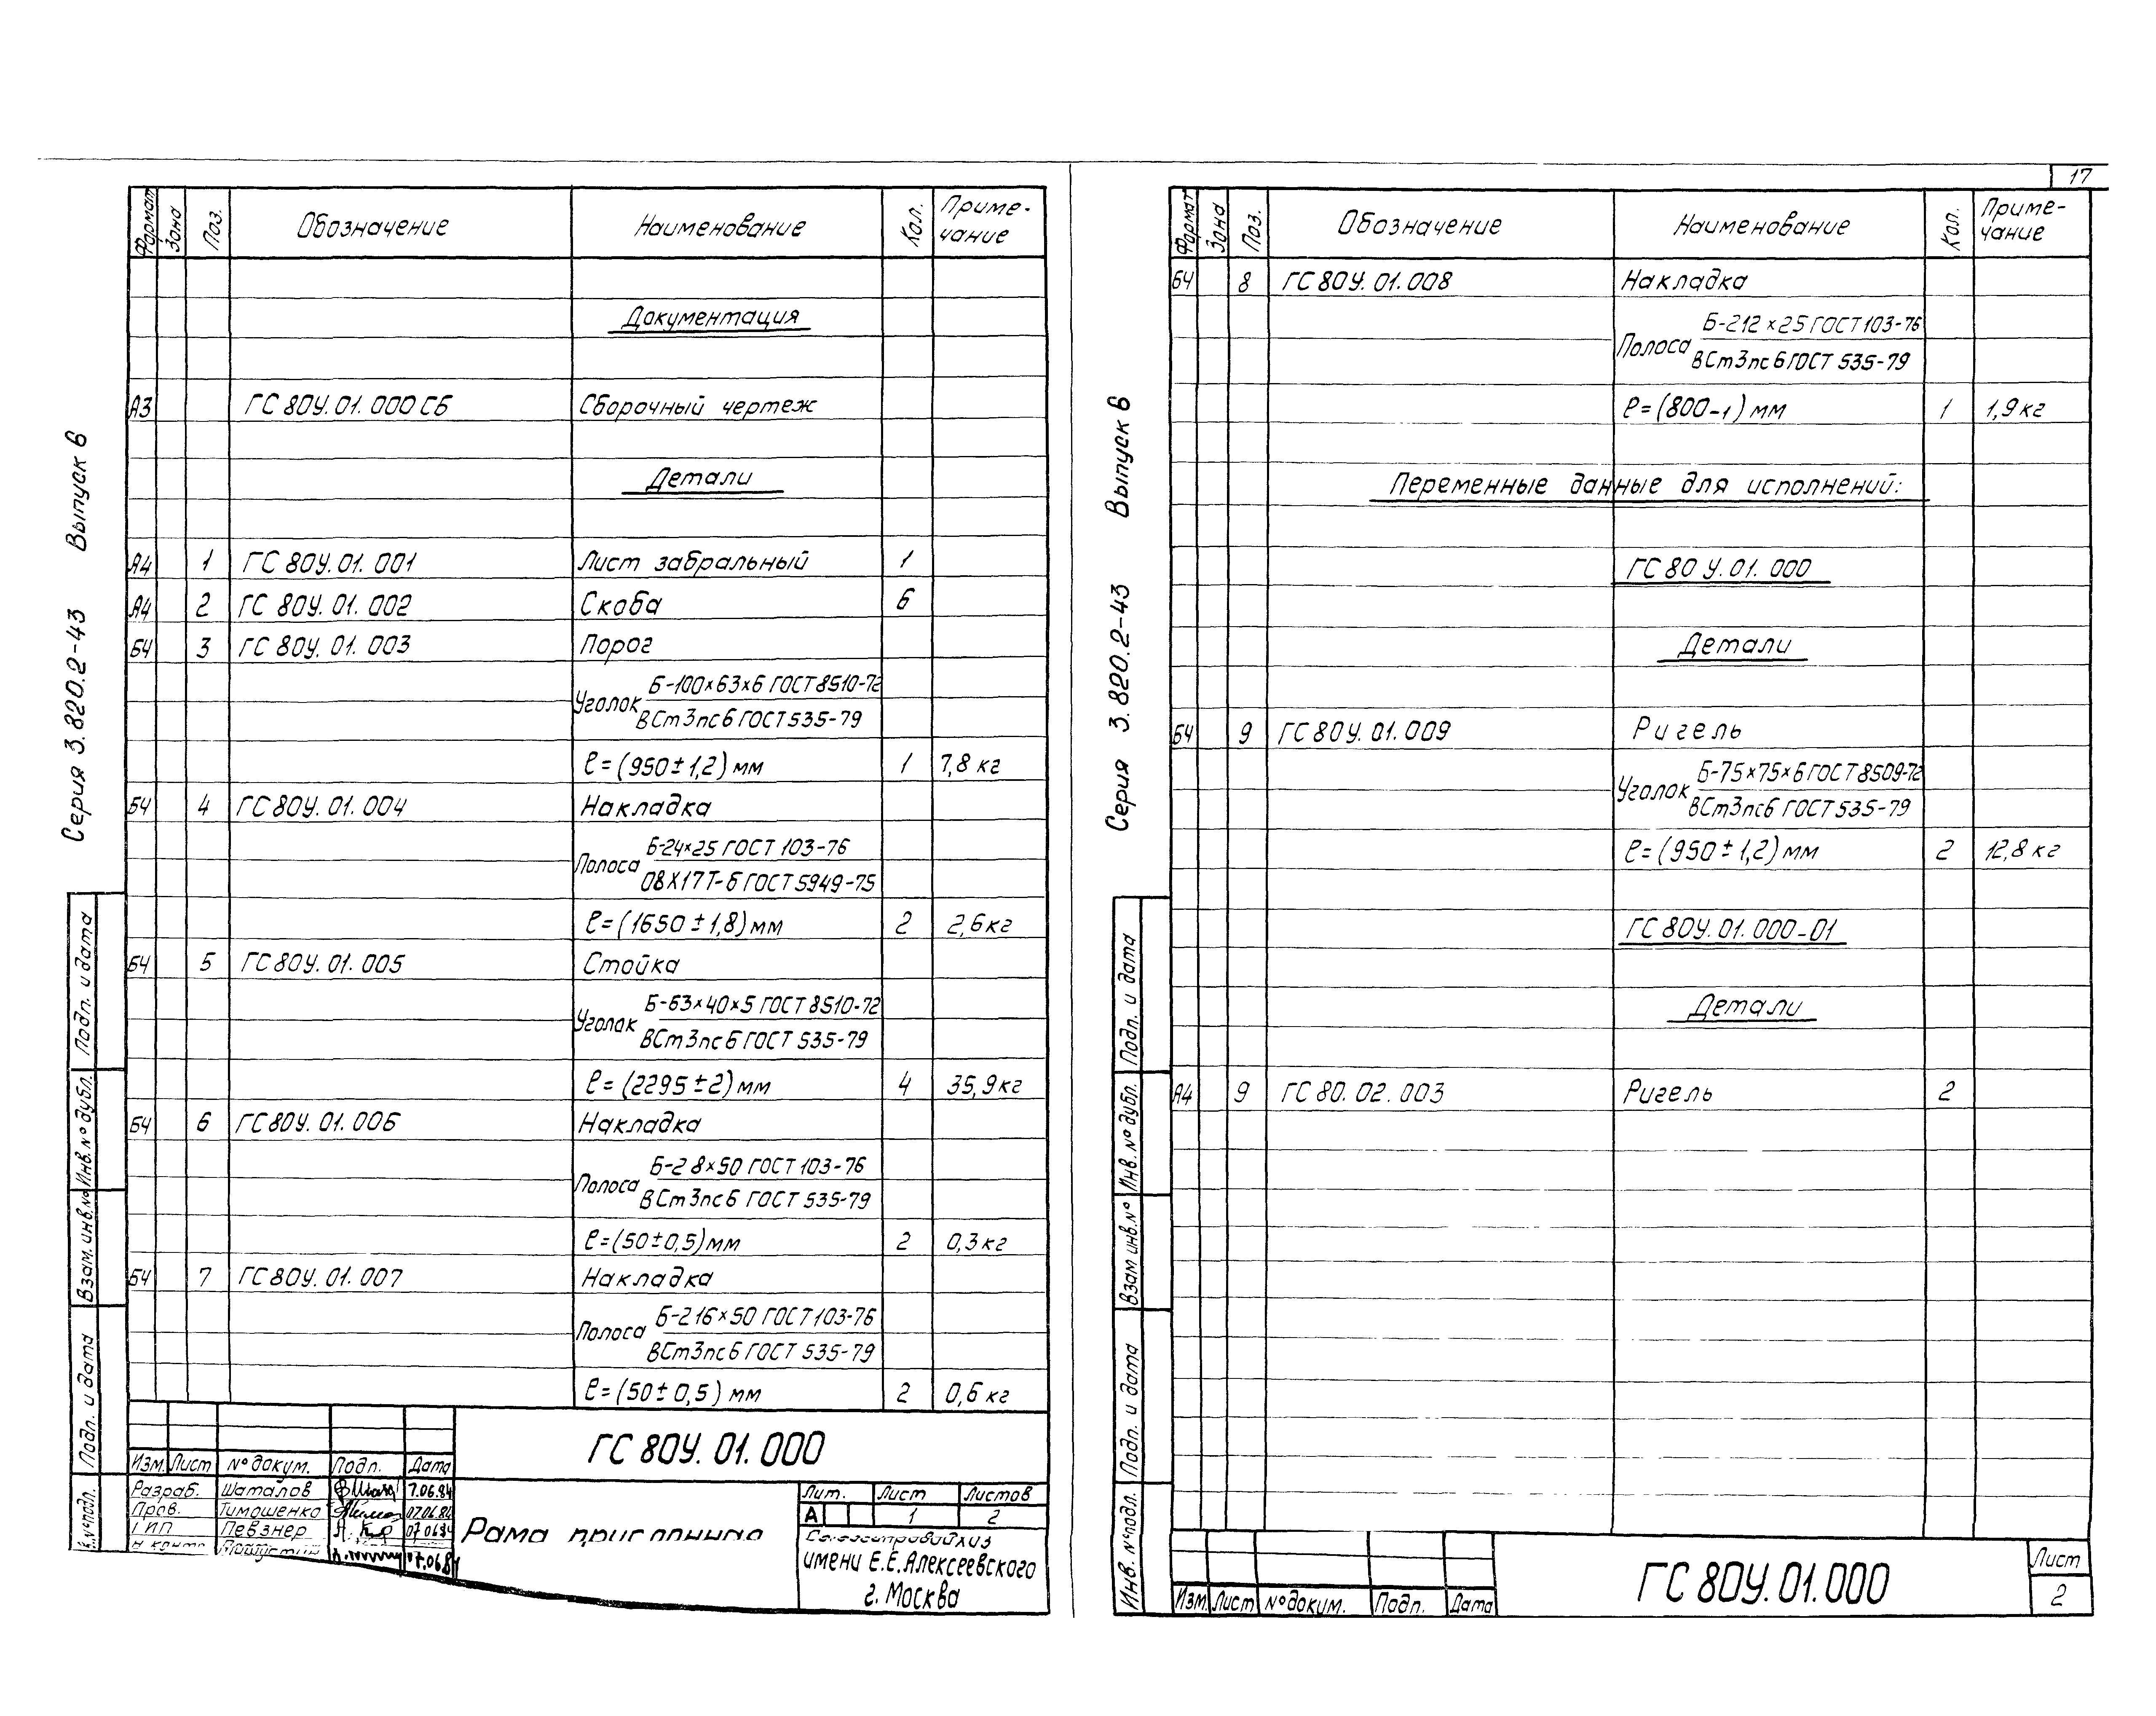 17
Серия 3.820.2-43 Выпуск 6
Формат Зона Поз. Обозначение Наименование Кол. Приме-
чание
Документация
А3 ГС 80У.01.000 СБ Сборочный чертеж
Детали
А4 1 ГС 80У.01.001 Лист забральный 1
А4 2 ГС 80У.01.002 Скоба 6
БЧ 3 ГС 80У.01.003 Порог
Уголок Б-100×63×6 ГОСТ 8510-72
ВСт3пс6 ГОСТ 535-79
ℓ=(950±1,2) мм 1 7,8 кг
БЧ 4 ГС 80У.01.004 Накладка
Полоса Б-24×25 ГОСТ 103-76
08Х17Т-б ГОСТ 5949-75
ℓ=(1650±1,8) мм 2 2,6 кг
БЧ 5 ГС 80У.01.005 Стойка
Уголок Б-63×40×5 ГОСТ 8510-72
ВСт3пс6 ГОСТ 535-79
ℓ=(2295±2) мм 4 35,9 кг
БЧ 6 ГС 80У.01.006 Накладка
Полоса Б-2 8×50 ГОСТ 103-76
ВСт3пс6 ГОСТ 535-79
ℓ=(50±0,5) мм 2 0,3 кг
БЧ 7 ГС 80У.01.007 Накладка
Полоса Б-2 16×50 ГОСТ 103-76
ВСт3пс6 ГОСТ 535-79
ℓ=(50±0,5) мм 2 0,6 кг
Подп. и дата
Инв. № дубл.
Взам. инв. №
Подп. и дата
№ подл.
ГС 80У.01.000
Изм. Лист № докум. Подп. Дата
Разраб. Шаталов 7.06.84
Пров. Тимошенко 07.06.84
ГИП Певзнер 07.06.84
Н. контр. 07.06.84
Рама
Лит. Лист Листов
А 1 2
имени Е.Е. Алексеевского
г. Москва
Серия 3.820.2-43 Выпуск 6
Формат Зона Поз. Обозначение Наименование Кол. Приме-
чание
БЧ 8 ГС 80У.01.008 Накладка
Полоса Б-212×25 ГОСТ 103-76
ВСт3пс6 ГОСТ 535-79
ℓ=(800-1) мм 1 1,9 кг
Переменные данные для исполнений:
ГС 80 У.01.000
Детали
БЧ 9 ГС 80У.01.009 Ригель
Уголок Б-75×75×6 ГОСТ 8509-72
ВСт3пс6 ГОСТ 535-79
ℓ=(950±1,2) мм 2 12,8 кг
ГС 80У.01.000-01
Детали
А4 9 ГС 80.02.003 Ригель 2
Подп. и дата
Инв. № дубл.
Взам инв. №
Подп. и дата
Инв. № подл.
Изм. Лист № докум. Подп. Дата
ГС 80У.01.000
Лист
2